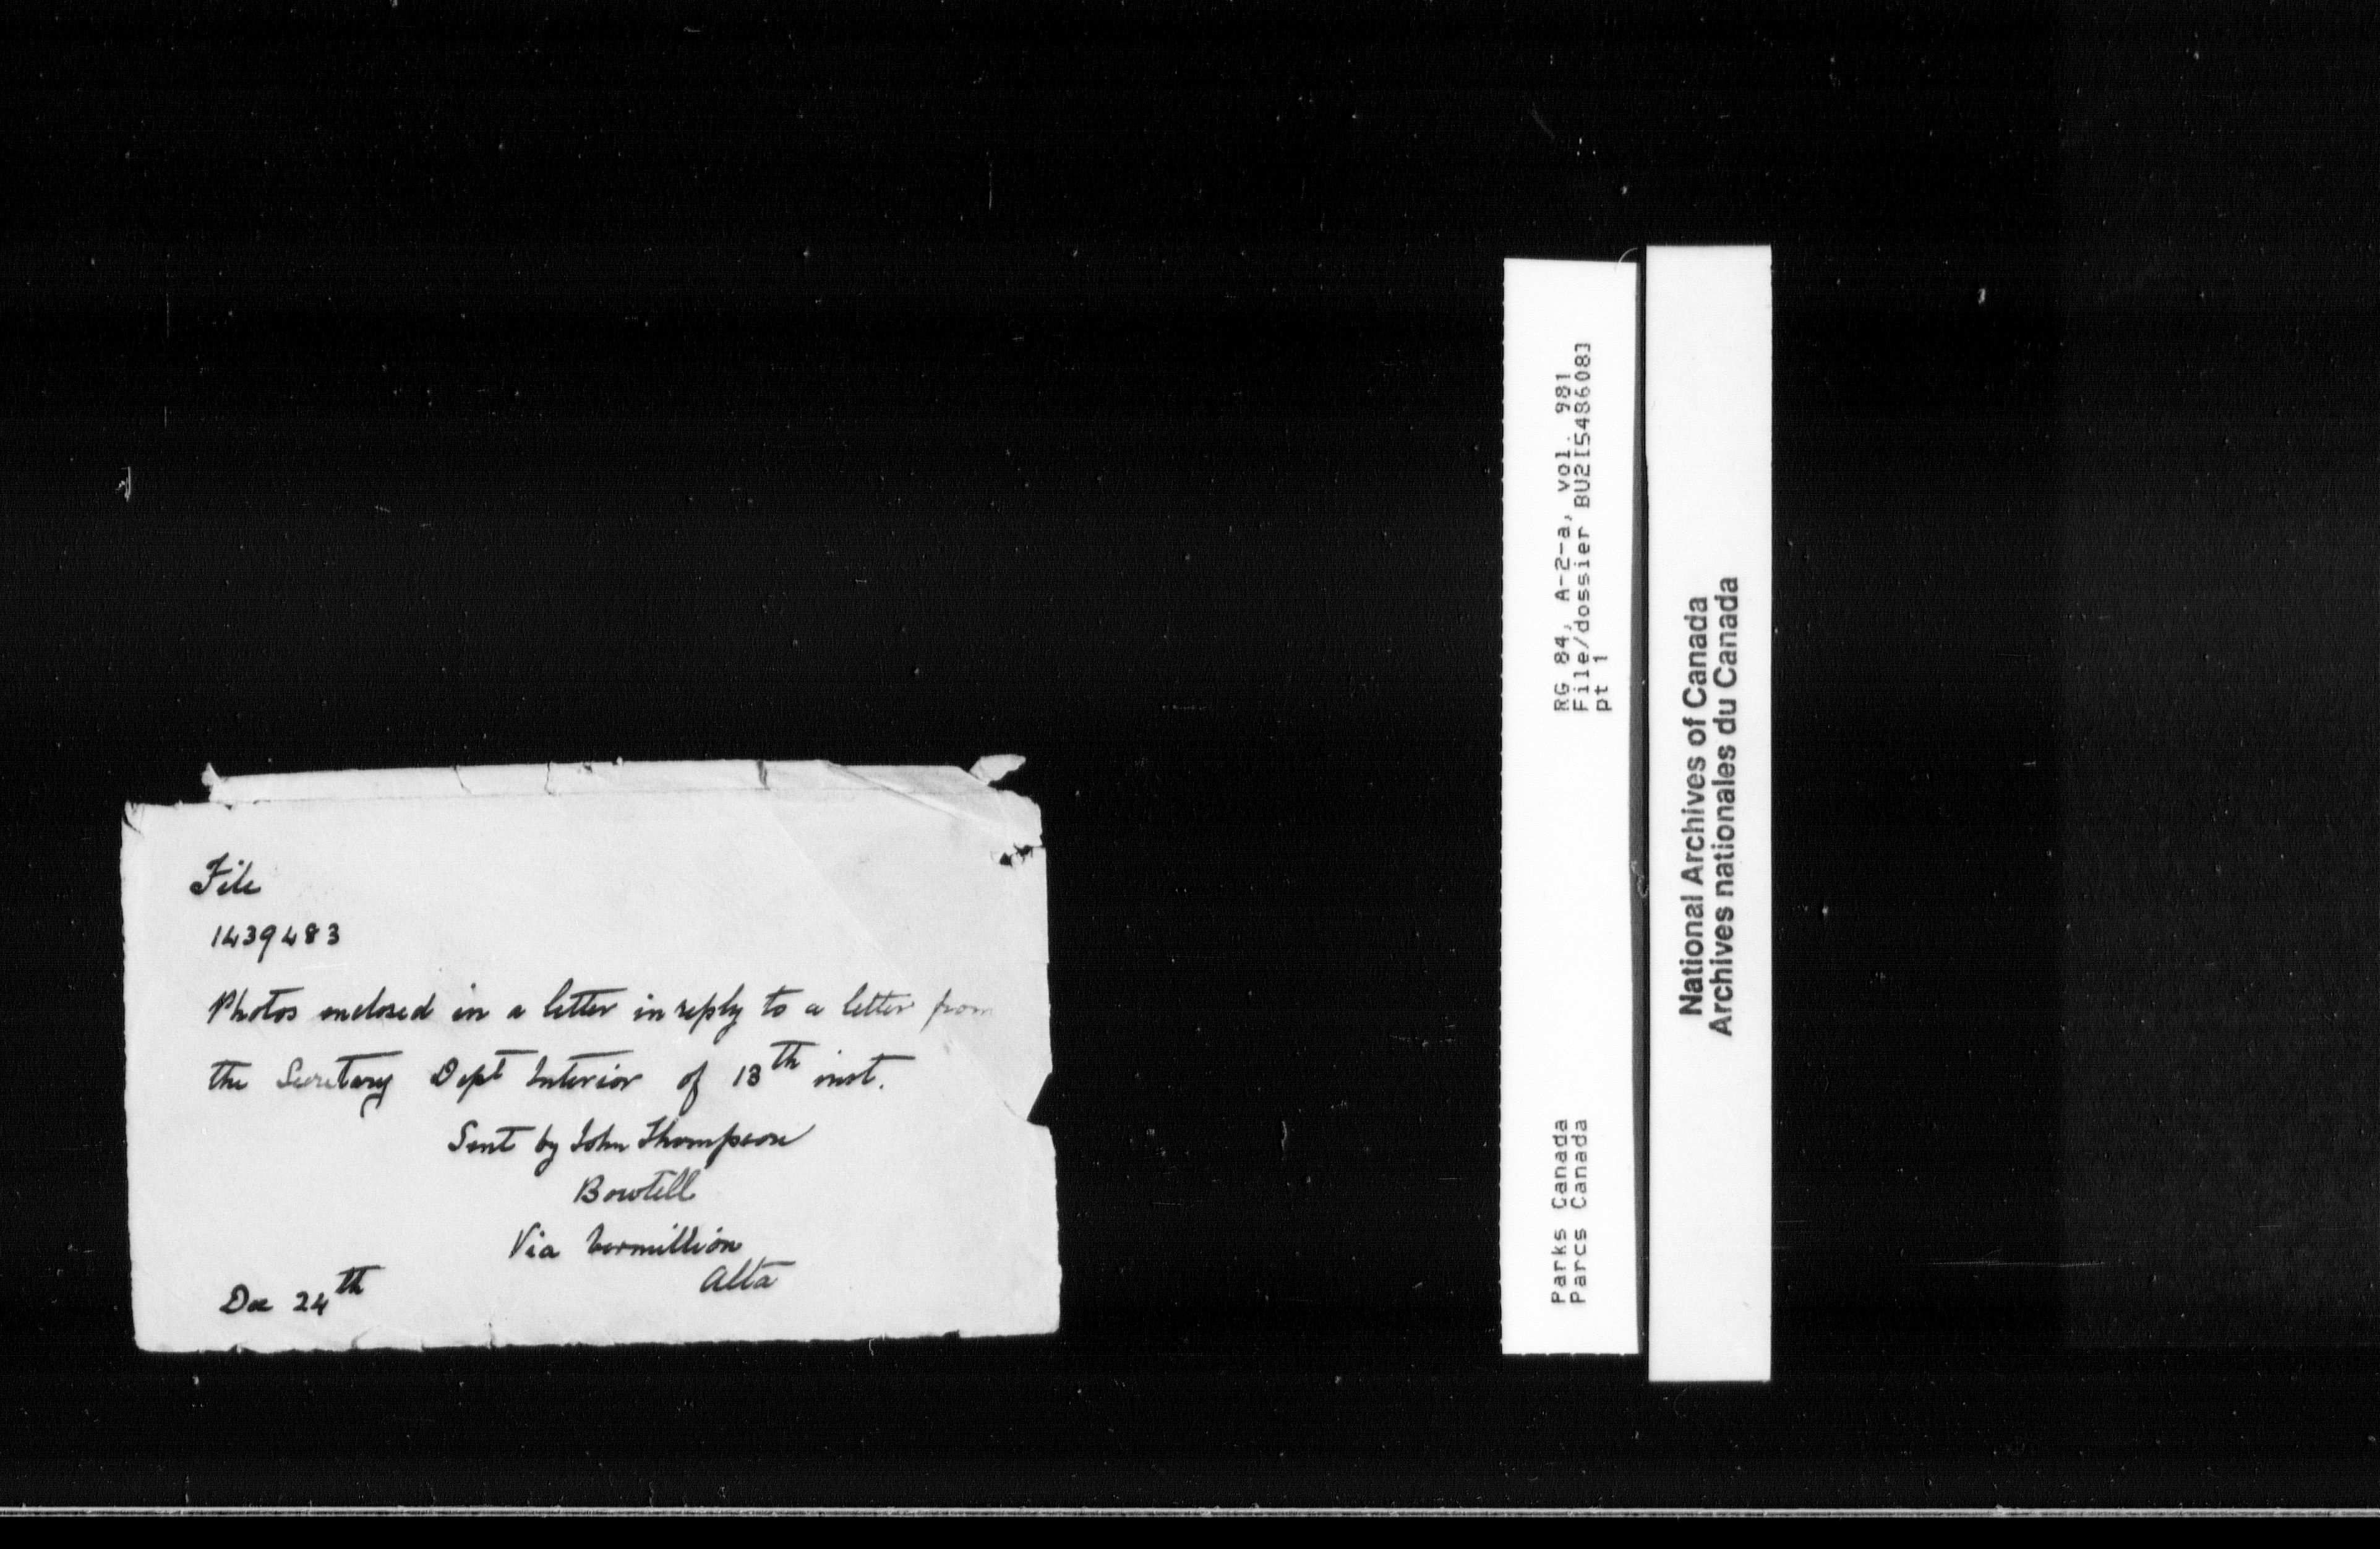 File
1439483
Photos enclosed in a letter in reply to a letter from
the Secretary Dept Interior of 13th inst.
Sent by John Thompson
Bowtell
Via Vermillion
Alta
Dec 24th
RG 84, A-2-a, vol. 981
File/dossier BU2[548608]
pt 1
Parks Canada
Parcs Canada
National Archives of Canada
Archives nationales du Canada